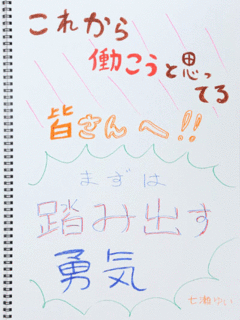 これから
働こうと思ってる
皆さんへ!!
まずは
踏み出す
勇気
七瀬ゆい